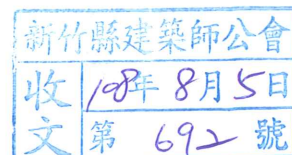 新竹縣建築師公會
收文 108年8月5日
第 692 號